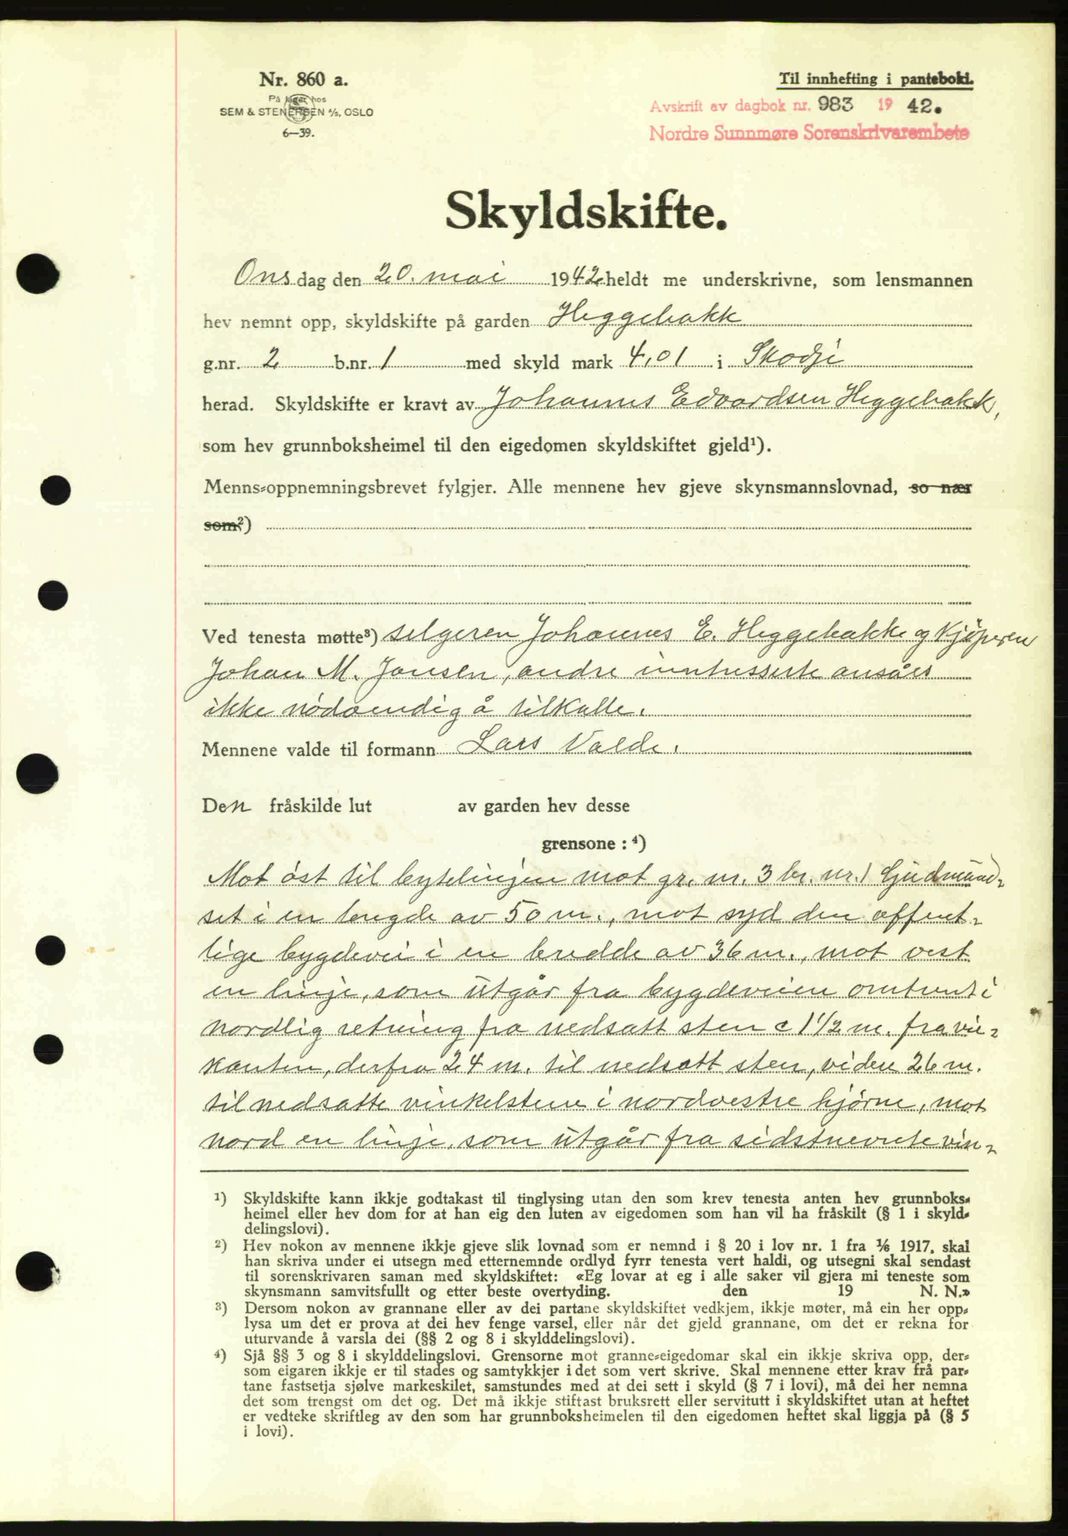 Nr. 860 a.
På lager hos
SEM & STENERSEN A/S, OSLO
6—39.
Til innhefting i panteboki.
Avskrift av dagbok nr. 983 1942.
Nordre Sunnmøre Sorenskrivarembete
Skyldskifte.
Onsdag den 20. mai 1942 heldt me underskrivne, som lensmannen
hev nemnt opp, skyldskifte på garden Heggebakk
g.nr. 2 b.nr. 1 med skyld mark 4,01 i Skodje
herad. Skyldskifte er kravt av Johannes Edvardsen Heggebakk,
som hev grunnboksheimel til den eigedomen skyldskiftet gjeld¹).
Menns-oppnemningsbrevet fylgjer. Alle mennene hev gjeve skynsmannslovnad, so nær
som²)
Ved tenesta møtte³) selgeren Johannes E. Heggebakke og Kjøperen
Johan M. Jansen, andre intresserte ansåes
ikke nødvendig å tilkalle.
Mennene valde til formann Lars Valde.
Den fråskilde lut av garden hev desse
grensone : ⁴)
Mot øst til bytelinjen mot gr. nr. 3 br. nr. 1 Gjudmund-
set i en lengde av 50 m., mot syd den offent-
lige bygdevei i en bredde av 36 m., mot vest
en linje, som utgår fra bygdeveien omtrent i
nordlig retning fra nedsatt sten c 1 1/2 m. fra vei-
kanten, derfra 24 m. til nedsatt sten, videre 26 m.
til nedsatte vinkelstene i nordvestre hjørne, mot
nord en linje, som utgår fra sidstnevnte vin-
¹) Skyldskifte kann ikkje godtakast til tinglysing utan den som krev tenesta anten hev grunnboks-
heimel eller hev dom for at han eig den luten av eigedomen som han vil ha fråskilt (§ 1 i skyld-
delingslovi).
²) Hev nokon av mennene ikkje gjeve slik lovnad som er nemnd i § 20 i lov nr. 1 fra 1/6 1917, skal
han skriva under ei utsegn med etternemnde ordlyd fyrr tenesta vert haldi, og utsegni skal sendast
til sorenskrivaren saman med skyldskiftet: «Eg lovar at eg i alle saker vil gjera mi teneste som
skynsmann samvitsfullt og etter beste overtyding. den 19 N. N.»
³) Dersom nokon av grannane eller av dei partane skyldskiftet vedkjem, ikkje møter, må ein her opp-
lysa um det er prova at dei hev fenge varsel, eller når det gjeld grannane, om det er rekna for
uturvande å varsla dei (§§ 2 og 8 i skylddelingslovi).
⁴) Sjå §§ 3 og 8 i skylddelingslovi. Grensorne mot granne-eigedomar skal ein ikkje skriva opp, der-
som eigaren ikkje er til stades og samtykkjer i det som vert skrive. Skal mennene etter krav frå par-
tane fastsetja sjølve markeskilet, samstundes med at dei sett i skyld (§ 7 i lovi), må dei her nemna
det som trengst om det og. Det må ikkje stiftast bruksrett eller servitutt i skyldskiftet utan at heftet
er vedteke skriftleg av den som har grunnboksheimelen til den eigedomen heftet skal liggja på (§ 5
i lovi).